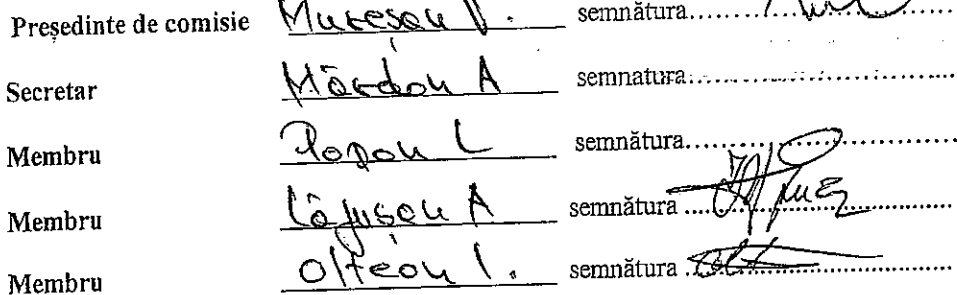 Președinte de comisie Mureșan V. semnătura..........
Secretar Mărdan A semnatura..........
Membru Popan L semnătura..........
Membru Lăpușan A semnătura..........
Membru Oltean I. semnătura..........